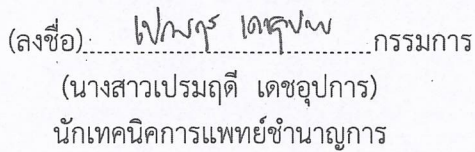 (ลงชื่อ) เปรมฤดี เดชอุปการ กรรมการ
(นางสาวเปรมฤดี เดชอุปการ)
นักเทคนิคการแพทย์ชำนาญการ